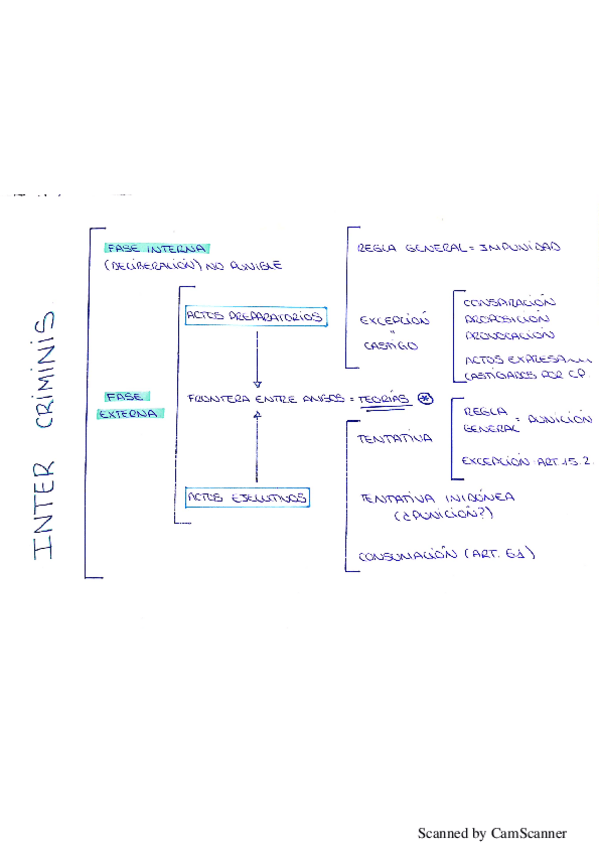 INTER CRIMINIS
FASE INTERNA
(DELIBERACIÓN) NO PUNIBLE
FASE
EXTERNA
ACTOS PREPARATORIOS
REGLA GENERAL = IMPUNIDAD
EXCEPCIÓN
=
CASTIGO
CONSPIRACIÓN
PROPOSICIÓN
PROVOCACIÓN
CASTIGADOS POR CP.
ACTOS
FRONTERA ENTRE AMBOS = TEORÍAS *
ACTOS EJECUTIVOS
TENTATIVA
REGLA
GENERAL = PUNICIÓN
EXCEPCIÓN ART. 15.2.
TENTATIVA INIDÓNEA
(¿PUNICIÓN?)
CONSUMACIÓN (ART. 61)
Scanned by CamScanner